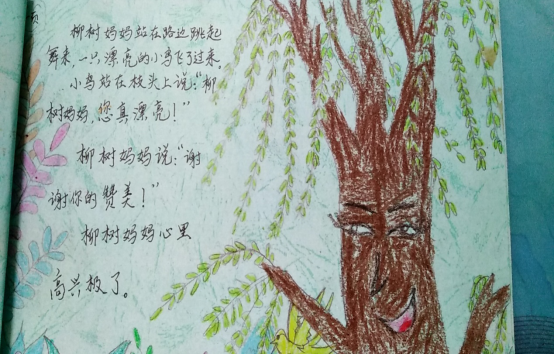 柳树妈妈站在路边跳起
舞来，一只漂亮的小鸟飞了过来，
小鸟站在枝头上说：“柳
树妈妈，您真漂亮！”
柳树妈妈说：“谢
谢你的赞美！”
柳树妈妈心里
高兴极了。